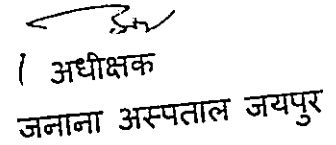 अधीक्षक
जनाना अस्पताल जयपुर